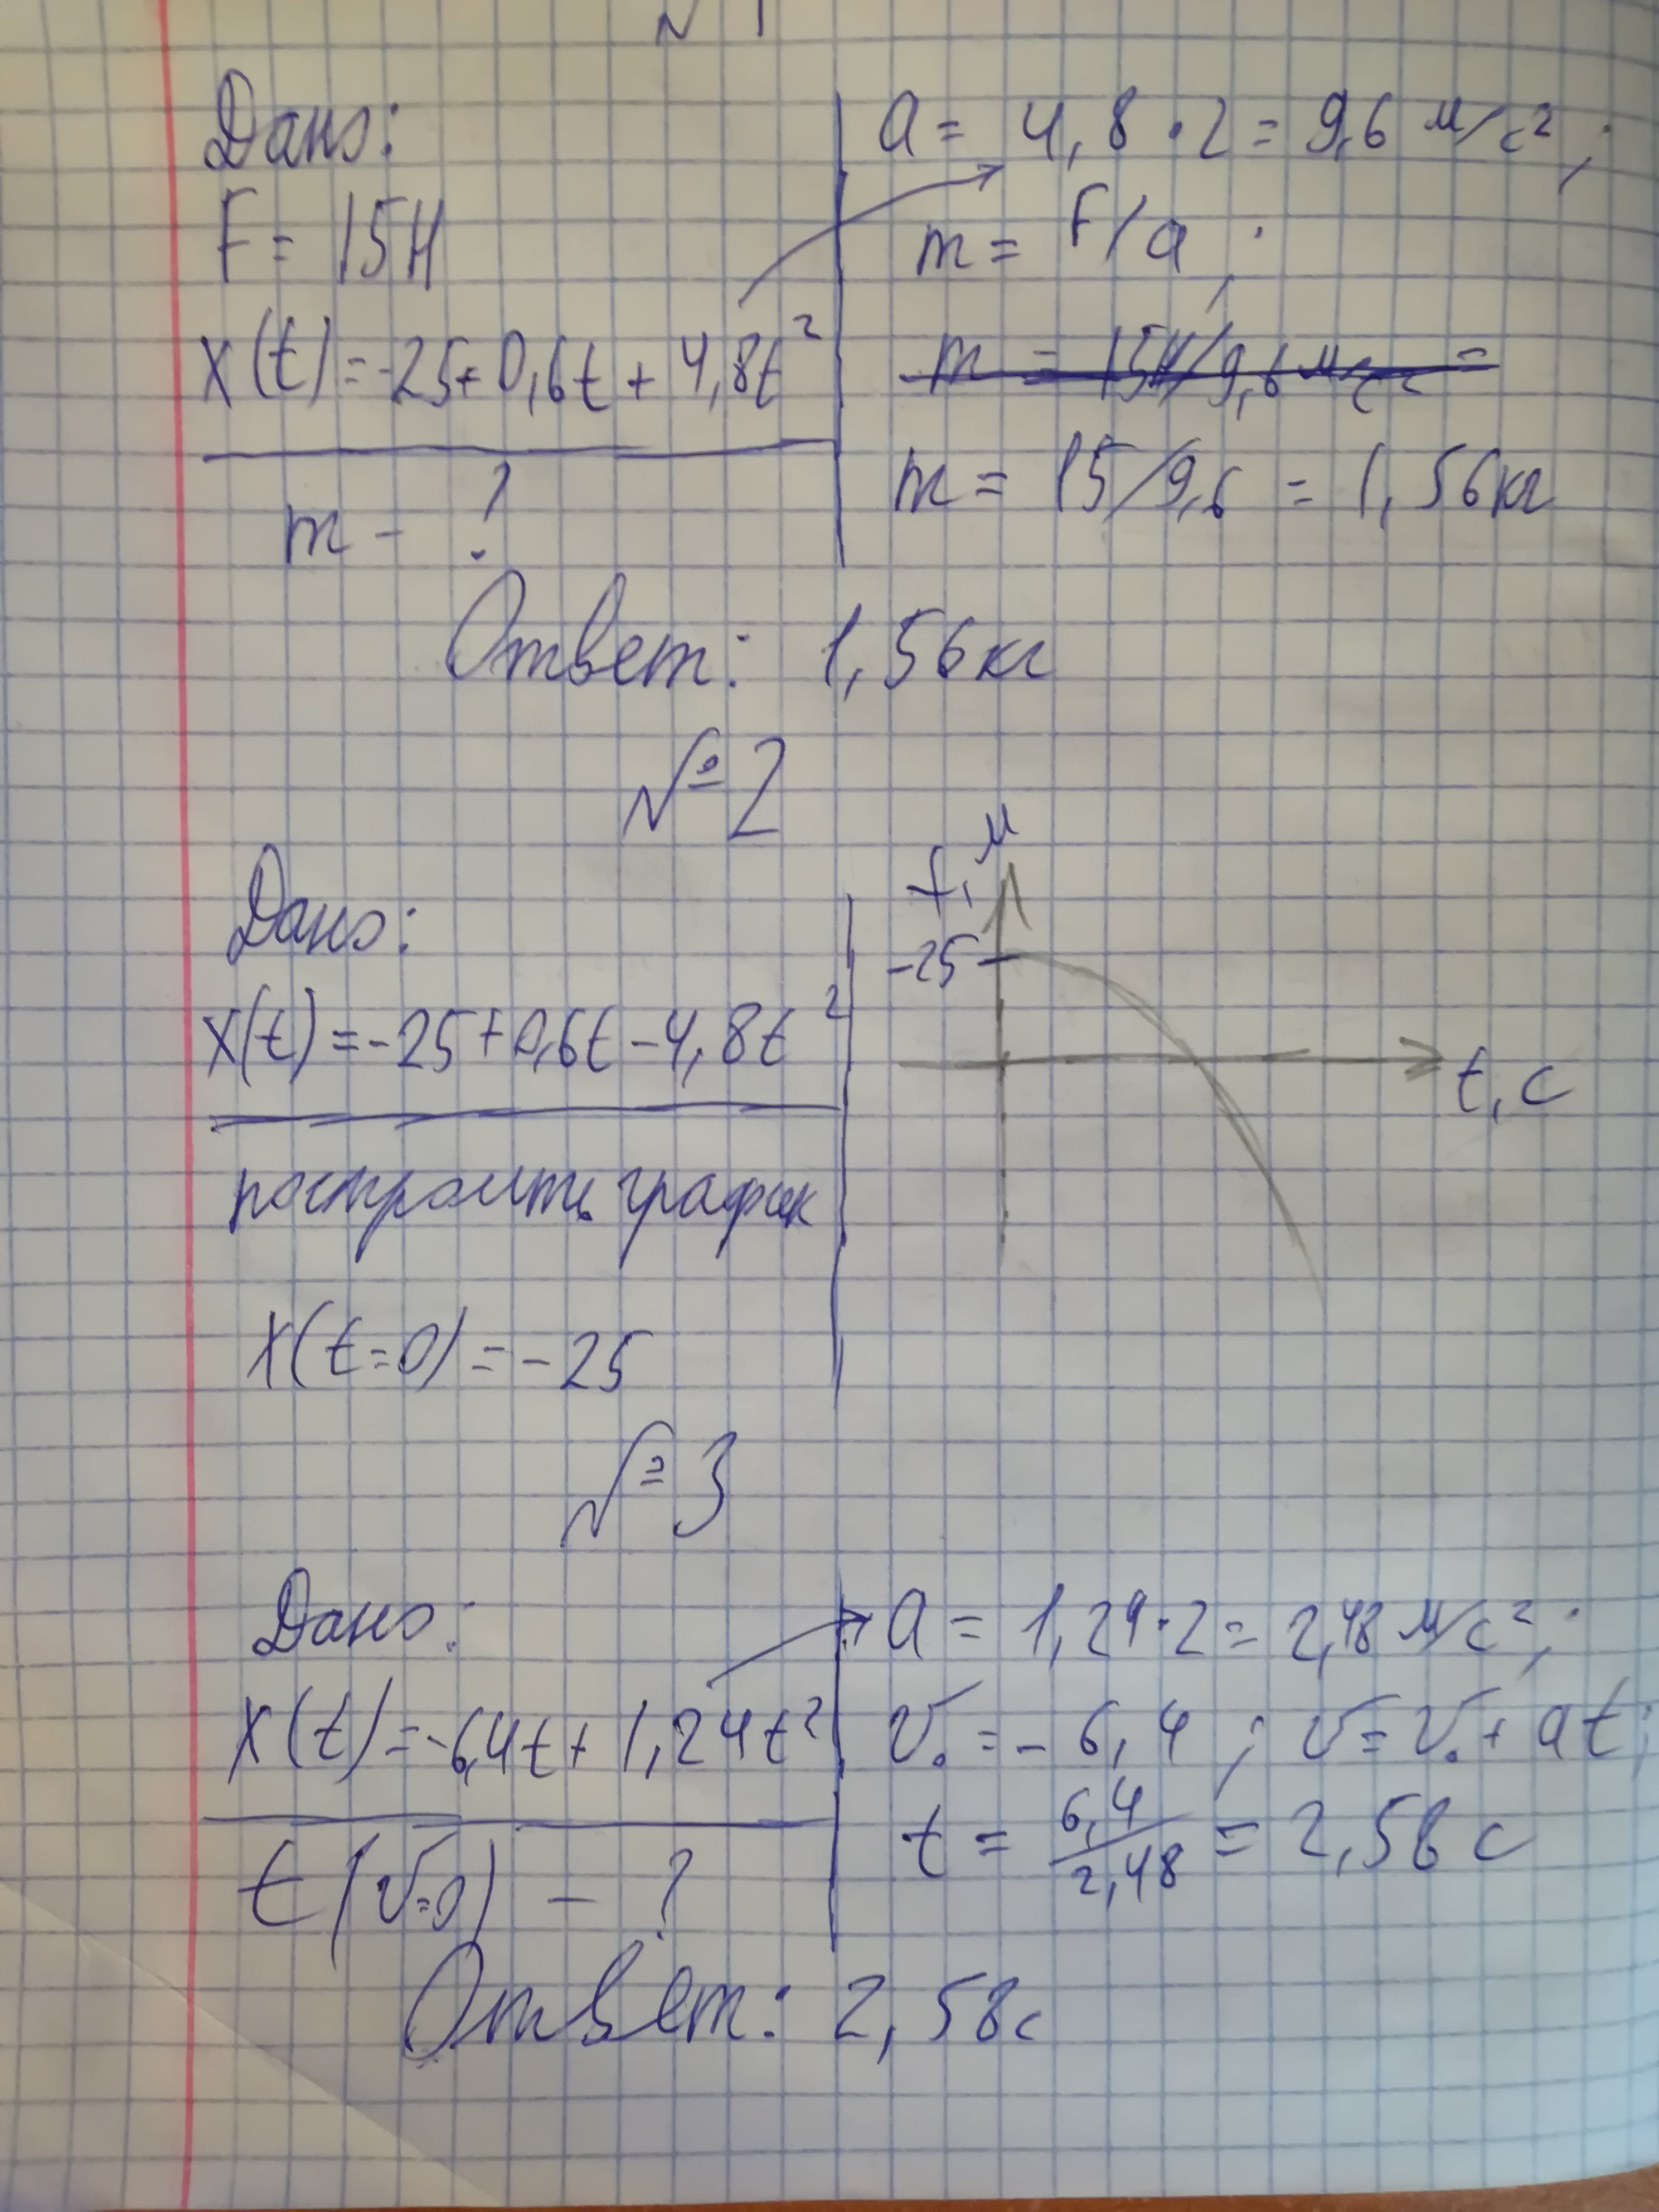 № 1
Дано:
F = 15Н
x(t)=-25+0,6t+4,8t²
m - ?
a = 4,8·2=9,6 м/с²;
m = F/a;
m = 15Н/9,6 м/с² =
m = 15/9,6 = 1,56кг
Ответ: 1,56кг
№ 2
Дано:
x(t)=-25+0,6t-4,8t²
построить график
x(t=0)=-25
f, м
-25
t, с
№ 3
Дано:
x(t)=-6,4t+1,24t²
t(v=0) - ?
a = 1,24·2=2,48 м/с²;
v₀=-6,4; v=v₀+at;
t = 6,4/2,48 = 2,58 с
Ответ: 2,58с